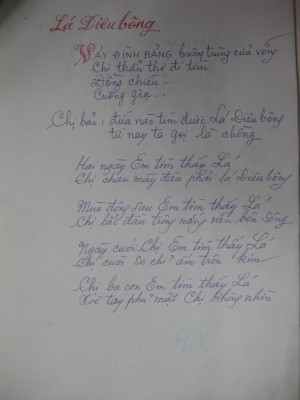 Lá Diêu bông
VÁY ĐÌNH BẢNG buông trùng cửa võng
Chị thẩn thơ đi tìm
Đồng chiều ...
Cuống rạ ...
Chị bảo : đứa nào tìm được Lá Diêu bông
từ nay ta gọi là chồng
Hai ngày Em tìm thấy Lá
Chị chau mày đâu phải Lá Diêu bông
Mùa đông sau Em tìm thấy Lá
Chị lắc đầu trông nắng vãn bên sông
Ngày cưới Chị Em tìm thấy Lá
Chị cười xe chỉ ấm trôn kim
Chị ba con Em tìm thấy Lá
Xoè tay phủ mặt Chị không nhìn